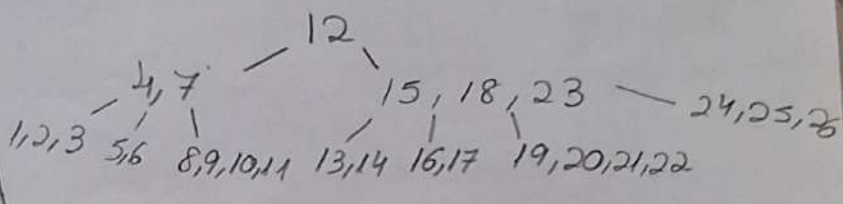 12
4,7
15, 18, 23
24,25,26
1,2,3
5,6
8,9,10,11
13,14
16,17
19,20,21,22